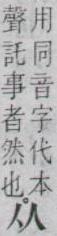 用同音字代本
聲託事者然也。从